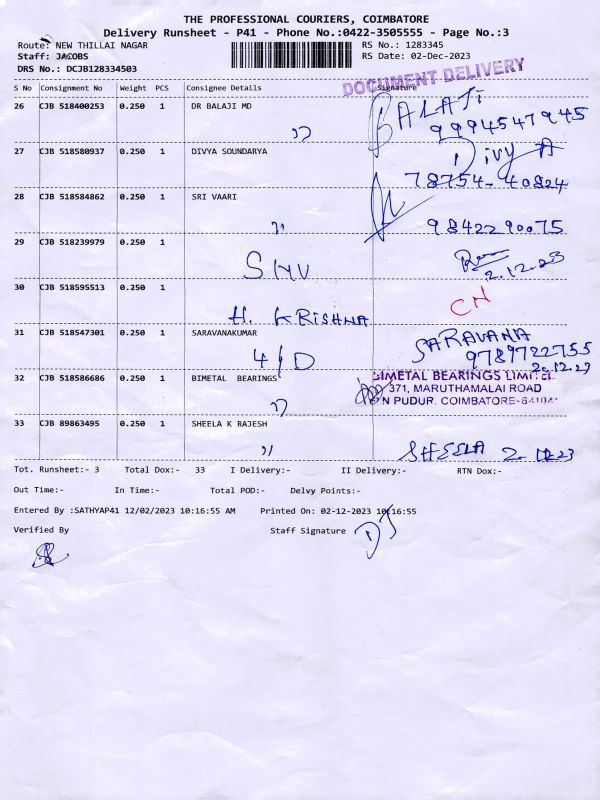 THE PROFESSIONAL COURIERS, COIMBATORE
Delivery Runsheet - P41 - Phone No.:0422-3505555 - Page No.:3
Route: NEW THILLAI NAGAR RS No.: 1283345
Staff: JACOBS RS Date: 02-Dec-2023
DRS No.: DCJB128334503
DOCUMENT DELIVERY
S No Consignment No Weight PCS Consignee Details Signature
26 CJB 518400253 0.250 1 DR BALAJI MD BALAJI
9994547945
27 CJB 518580937 0.250 1 DIVYA SOUNDARYA Divya
78754-40824
28 CJB 518584862 0.250 1 SRI VAARI
9842290075
29 CJB 518239979 0.250 1
SNV 2.12.23
30 CJB 518595513 0.250 1 CN
H. KRISHNA
31 CJB 518547301 0.250 1 SARAVANAKUMAR SARAVANA
4/D 9789722755
32 CJB 518586686 0.250 1 BIMETAL BEARINGS BIMETAL BEARINGS LIMITED
371, MARUTHAMALAI ROAD
N PUDUR, COIMBATORE-641041
33 CJB 89863495 0.250 1 SHEELA K RAJESH
SHEELA 2.12.23
Tot. Runsheet:- 3 Total Dox:- 33 I Delivery:- II Delivery:- RTN Dox:-
Out Time:- In Time:- Total POD:- Delvy Points:-
Entered By :SATHYAP41 12/02/2023 10:16:55 AM Printed On: 02-12-2023 10:16:55
Verified By Staff Signature